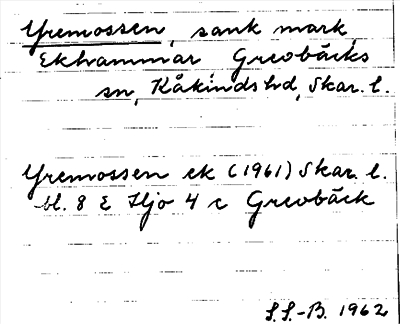 Yremossen, sank mark,
Ekhammar Grevbäcks
sn, Kåkinds hd, Skar. l.
Yremossen ek (1961) Skar. l.
bl. 8 E Hjo 4 c Grevbäck
S.S.-B. 1962